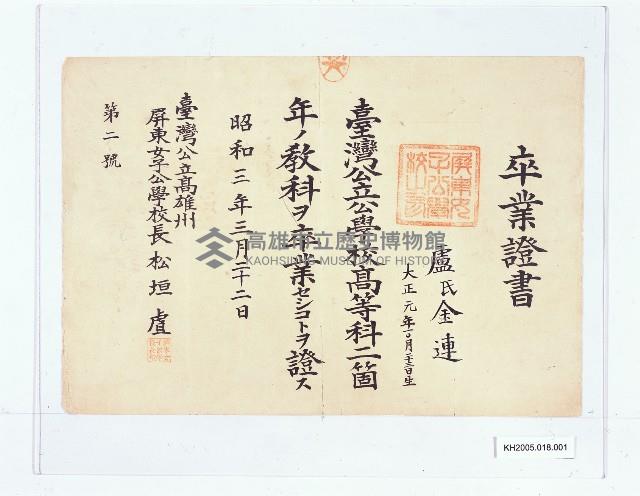 卒業證書
盧氏金連
大正元年十月二十三日生
臺灣公立公學校高等科二箇
年ノ教科ヲ卒業セシコトヲ證ス
昭和三年三月二十二日
臺灣公立高雄州
屏東女子公學校長松垣
第二號
高雄市立歷史博物館
KAOHSIUNG MUSEUM OF HISTORY
KH2005.018.001